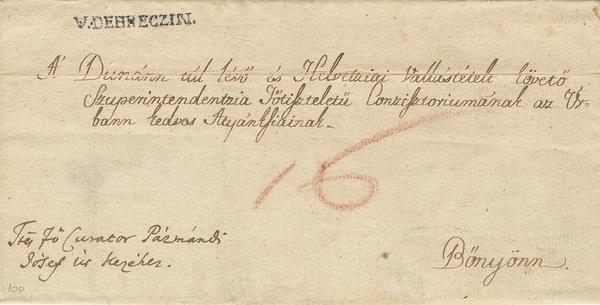 V. DEBRECZIN.
A' Dunánn túl lévő és Helvetziai Vallástételt követő
Szuperintendentzia Főtiszteletű Conzisztoriumának az Úr-
bann kedves Atyánkfiainak
16
Fő Curator Pázmándi
Jósef úr kezéhez.
Bőnyönn.
100